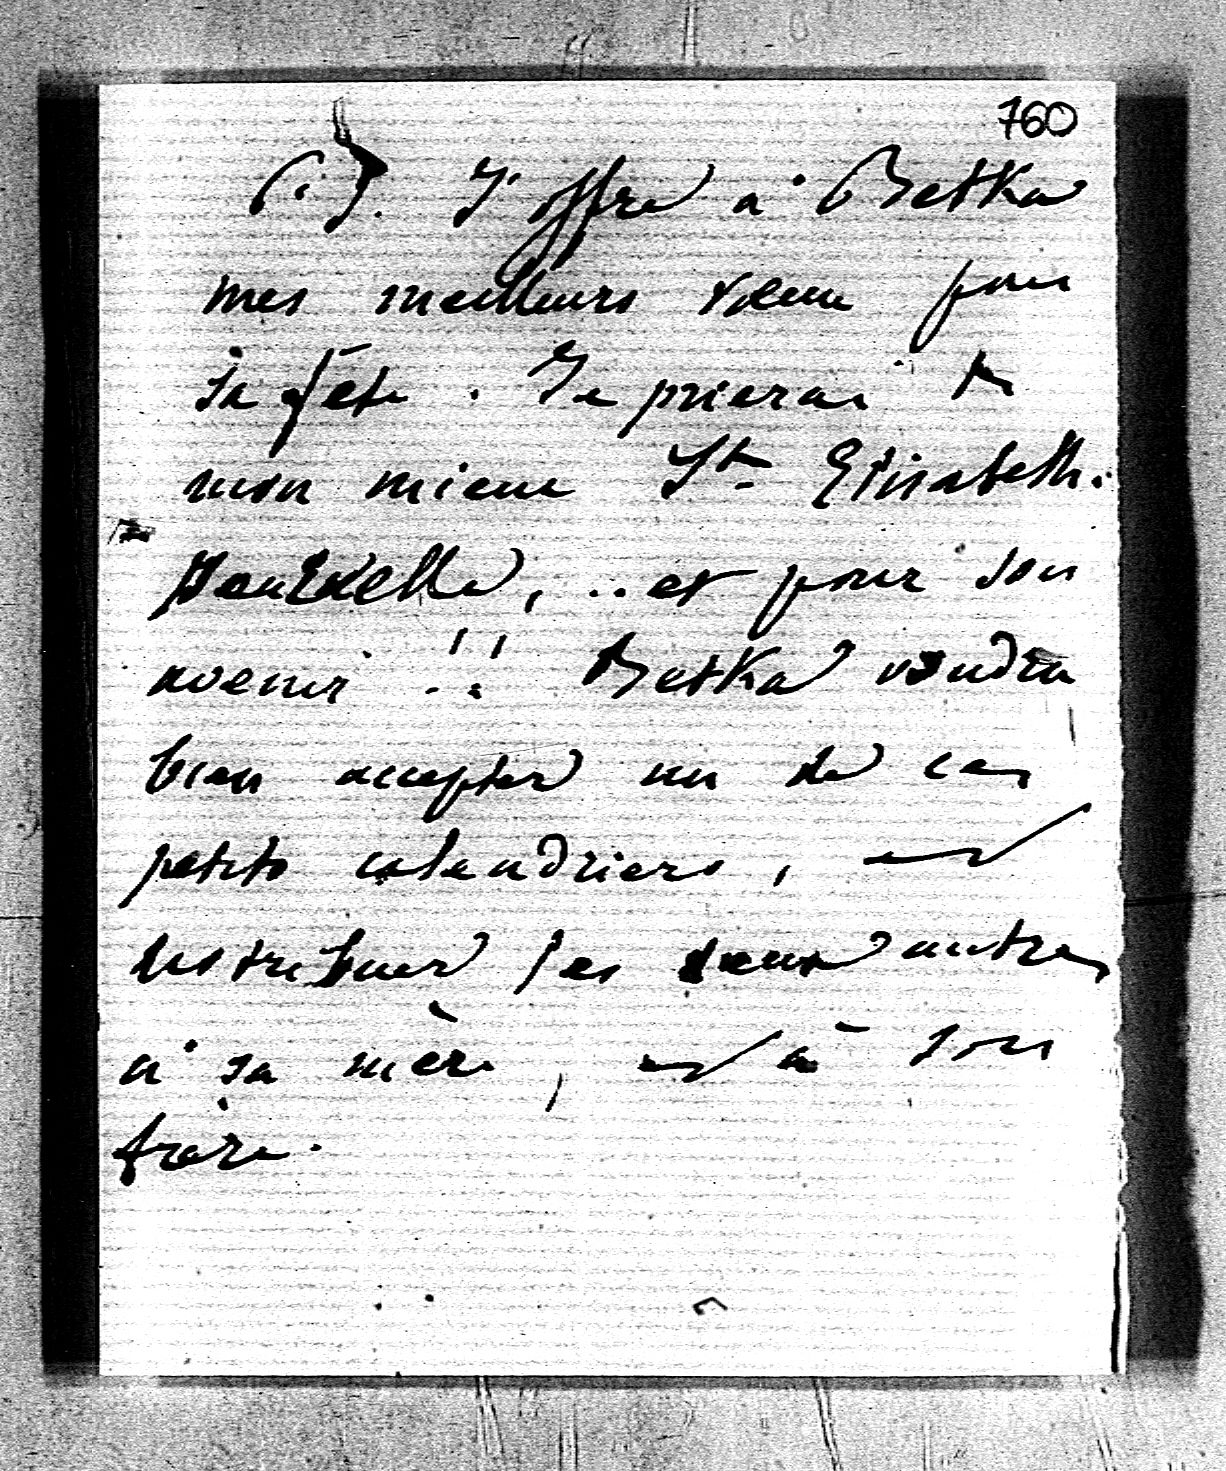 760
P.S. J'offre à Betka
mes meilleurs vœux pour
sa fête. Je prierai de
mon mieux Ste Elisabeth.
pour elle, .. et pour son
avenir !! Betka voudra
bien accepter un de ces
petits calendriers, et
distribuer les deux autres
à sa mère, et à son
frère.